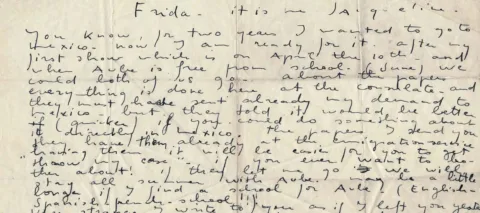 Frida - it is me Jacqueline.
You know, for two years I wanted to go to
Mexico. now I am ready for it. after my
first show which is on April the 10th, and
when Aube is free from school - June, we
could both of us go. about the papers
every thing is done here at the consulate, and
they must have sent already my demand to
Mexico but they told it would be better
if you could do something about
it directly in Mexico. the papers I send you
they have them already at the Emigration service
reading them it will be easier for you to
throw my case. if you ever want to
then about! if they let me go we will
stay all summer with Aube. may be little
longer if I find a school for Aube (English-
Spanish french-school!!)
strange I write to you as if I left you